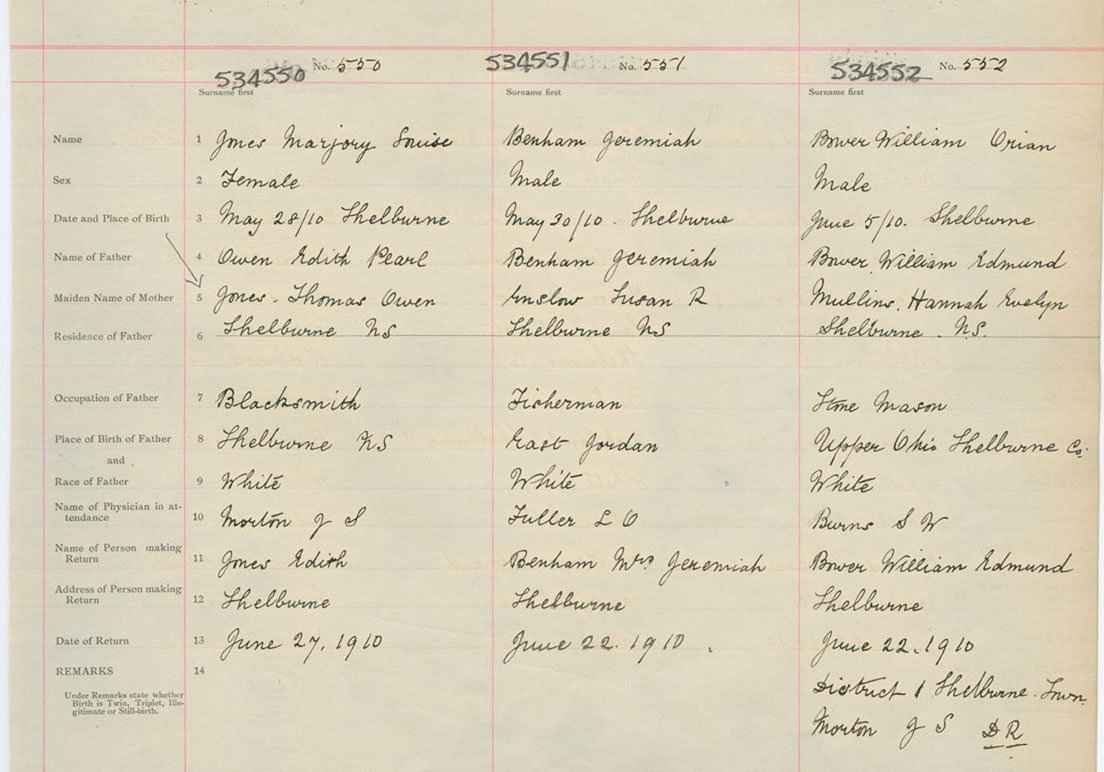 534550 No. 550 534551 No. 551 534552 No. 552
Surname first Surname first Surname first
Name 1 Jones Marjory Louise Benham Jeremiah Bower William Orian
Sex 2 Female Male Male
Date and Place of Birth 3 May 28/10 Shelburne May 30/10. Shelburne June 5/10. Shelburne
Name of Father 4 Owen Edith Pearl Benham Jeremiah Bower William Edmund
Maiden Name of Mother 5 Jones. Thomas Owen Enslow Susan R Mullins. Hannah Evelyn
Residence of Father 6 Shelburne NS Shelburne NS Shelburne. N.S.
Occupation of Father 7 Blacksmith Fisherman Stone Mason
Place of Birth of Father 8 Shelburne NS East Jordan Upper Ohio Shelburne Co.
and
Race of Father 9 White White White
Name of Physician in at-
tendance 10 Morton J S Fuller L O Burns S W
Name of Person making
Return 11 Jones Edith Benham Mrs Jeremiah Bower William Edmund
Address of Person making
Return 12 Shelburne Shelburne Shelburne
Date of Return 13 June 27, 1910 June 22. 1910. June 22, 1910
REMARKS 14
Under Remarks state whether
Birth is Twin, Triplet, Ille-
gitimate or Still-birth.
District 1 Shelburne. Town.
Morton J S D R